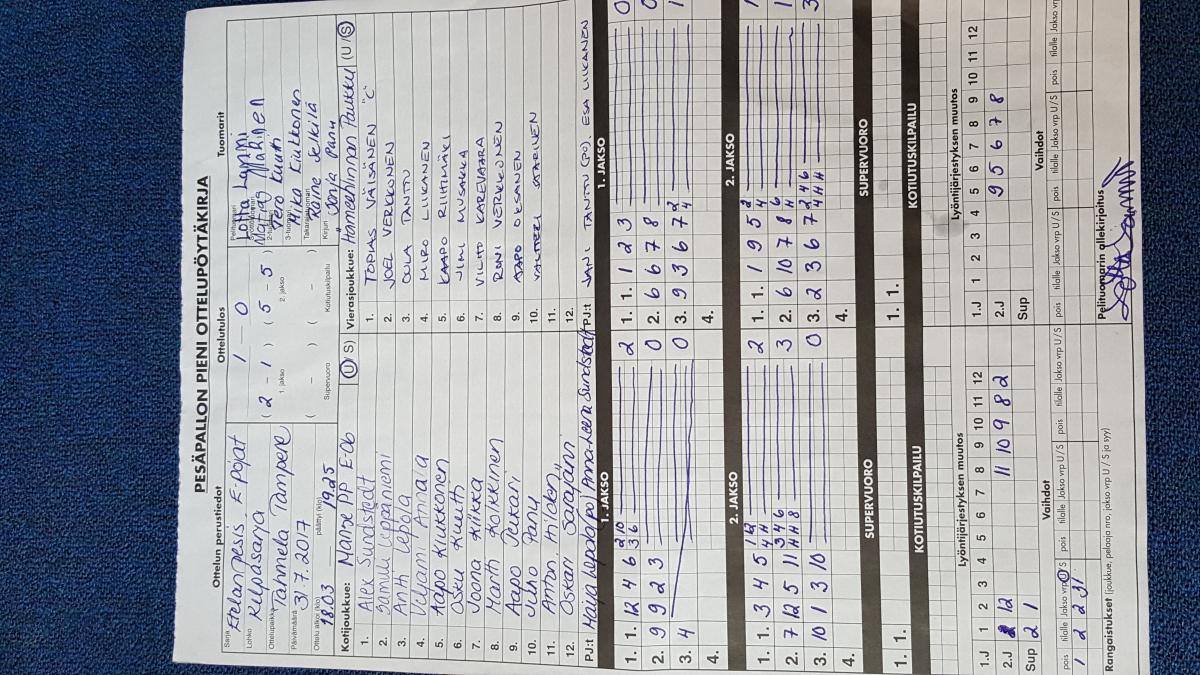 PESÄPALLON PIENI OTTELUPÖYTÄKIRJA
Ottelun perustiedot
Ottelutulos
Tuomarit
Sarja Etelänpesis E-pojat
Lohko
Ottelupaikka Tahmela Tampere
Päivämäärä 31.7.2017
Ottelu alkoi (klo) 18.03 päättyi (klo) 19.25
1 – 0
( 2 – 1 ) ( 5 – 5 )
1. jakso 2. jakso
( – ) ( – )
Supervuoro Kotiutuskilpailu
Pelituomari Lotta
2-tuomari Tero Kuutti
3-tuomari Mika Kiukkonen
Takatuomari
Kirjuri Sonja Panu
Kotijoukkue: Manse PP E-06 (U/S)
1. Alex Sundstedt
2. Samuli Leppäniemi
3. Antti Lepola
4. Viljami Annala
5. Aapo Kiukkonen
6. Osku Kuutti
7. Joona Kiikka
8. Martti Koikkinen
9. Aapo Jukari
10. Juho Panu
11. Anton
12. Oskari
PJ:t Anna-Leena Sundstedt
Vierasjoukkue: Hämeenlinnan Paukku (U/S)
1. TOPIAS VÄISÄNEN "C"
2. JOEL VERKKONEN
3. OULA TANTTU
4. MIRO LIIKANEN
5. KAAPO RIIHIMÄKI
6. JIMI MUSAKKA
7. VILHO KAREVAARA
8. RONI VERKKONEN
9. AAPO OKSANEN
10. VALTTERI SAARINEN
11.
12.
PJ:t JANI TANTTU (PO). ESA LIIKANEN
1. JAKSO
1. 1. 12 4 6 3 6 2 10 2
2. 9 9 2 3 0
3. 4 0
4.
1. JAKSO
1. 1. 1 2 3 0
2. 6 6 7 8 0
3. 9 3 6 7 4 2 1
4.
2. JAKSO
1. 1. 3 4 5 4 H 1 12 2
2. 7 12 5 11 H H 8 3 4 6 3
3. 10 1 3 10 0
4.
2. JAKSO
1. 1. 1 9 5 4 2 1
2. 6 10 7 8 H 6 1
3. 2 3 6 7 4 H H 2 4 6 3
4.
SUPERVUORO
1. 1.
SUPERVUORO
1. 1.
KOTIUTUSKILPAILU
KOTIUTUSKILPAILU
Lyöntijärjestyksen muutos
1.J 1 2 3 4 5 6 7 8 9 10 11 12
2.J 12 11 10 9 8 2
Sup 2 1
Lyöntijärjestyksen muutos
1.J 1 2 3 4 5 6 7 8 9 10 11 12
2.J 9 5 6 7 8
Sup
Vaihdot
pois tilalle Jakso vrp U/S pois tilalle Jakso vrp U/S pois tilalle Jakso vrp U/S
1 2 2 3J
Vaihdot
pois tilalle Jakso vrp U/S pois tilalle Jakso vrp U/S pois tilalle Jakso vrp
Rangaistukset (joukkue, pelaaja nro, jakso vrp U / S ja syy)
Pelituomarin allekirjoitus